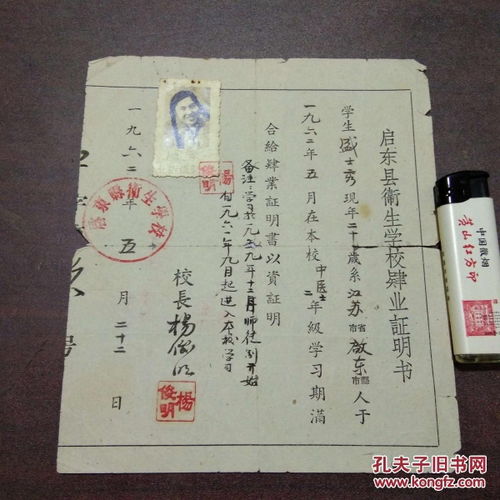 启东县衛生学校肄业証明书
学生盛士秀現年二十歲系江苏省市啟东縣市人于
一九六二年五月在本校中医士二年級学习期滿
合給肄業証明書以資証明
备注:学习於一九五九年十二月师徒
有一九六一年九月起进入本校学习
校長楊俊明
楊俊明
楊俊明
一九六二年五月二十二日
啓東縣衛生学校
号
中国徽烟
黄山红方印
孔夫子旧书网
KONGFZ.COM